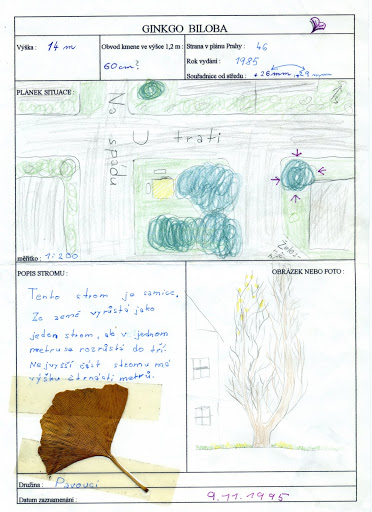 GINKGO BILOBA
Výška : 14 m
Obvod kmene ve výšce 1,2 m :
60 cm?
Strana v plánu Prahy : 46
Rok vydání : 1985
Souřadnice od středu :
26mm 29mm
PLÁNEK SITUACE :
Na spádu
U trati
měřítko : 1:200
POPIS STROMU :
Tento strom je samice.
Ze země vyrůstá jako
jeden strom, ale v jednom
metru se rozrůstá do tří.
Nejvyšší část stromu má
výšku čtrnácti metrů.
OBRÁZEK NEBO FOTO :
Družina : Pavouci
Datum zaznamenání : 9.11.1995